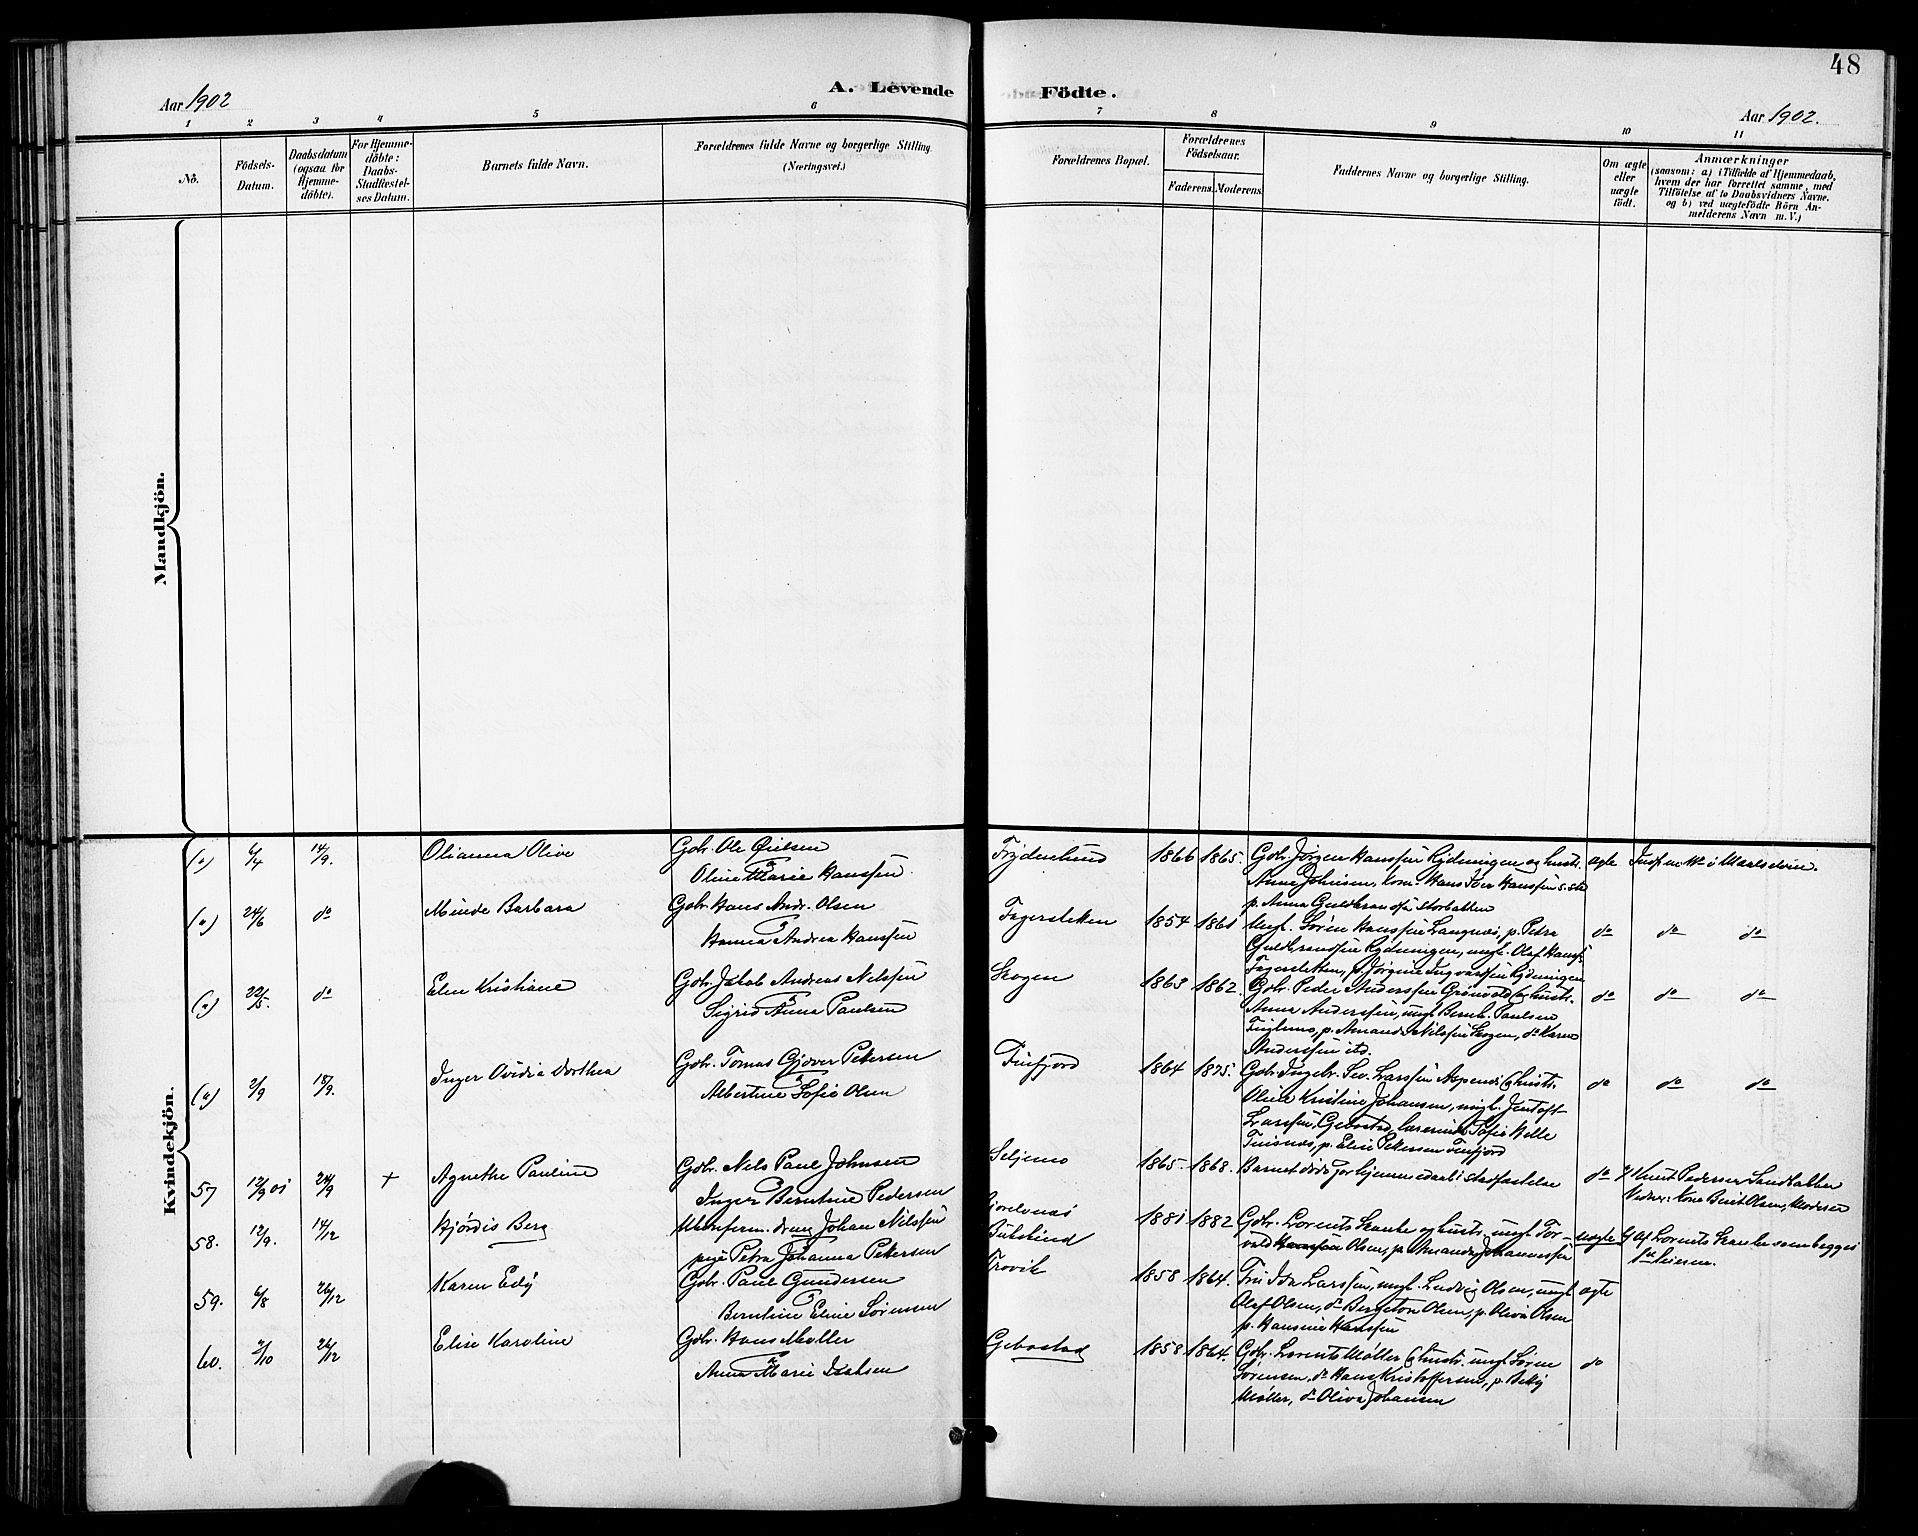 48
Aar 1902
A. Levende Födte.
Aar 1902.
1 2 3 4 5 6 7 8 9 10 11
No.
Födsels-Datum.
Daabsdatum (ogsaa for Hjemme-döbte).
For Hjemme-döbte: Daabs-Stadfæstel-ses Datum.
Barnets fulde Navn.
Forældrenes fulde Navne og borgerlige Stilling. (Næringsvei.)
Forældrenes Bopæl.
Forældrenes Födselsaar.
Faderens. Moderens.
Faddernes Navne og borgerlige Stilling.
Om ægte eller uægte födt.
Anmærkninger
(saasom: a) i Tilfælde af Hjemmedaab,
hvem der har forrettet samme, med
Tilföielse af to Daabsvidners Navne,
og b) ved uægtefödte Börn An-
melderens Navn m. V.)
Mandkjön.
Kvindekjön.
6/4 14/9. Olianna Olive
Gbr. Ole
Oline Marie Hanssen.
1866 1865.
Gbr. Jørgen Hanssen Rydningen og hustr.
Anne Johnsen, Kom. Hans Iver Hanssen s. st.
p. Anna Guldbrandsen Storbakken
ægte
24/6 do Minde Barbara
Gbr. Hans Andr. Olsen
Hanna Andrea Hanssen
1854 1861
Ungk. Søren Hanssen Langnes, p. Petra
Guldbrandsen Rydningen, ungk. Olaf Hanss.
p. Jørgine Ingvartsen Rydningen
do do do
22/5. do Elen Kristiane
Gbr. Jakob Andreas Nilssen
Sigrid Anna Paulsen
Skogen 1863 1862.
Gbr. Peder Anderssen Grønvold & hustr.
Anna Anderssen, ungk. Bernh. Paulsen
p. Amanda Nilssen Skogen, do Karen
Anderssen itd.
do do do
2/9 18/9. Inger Ovidia Dorthea
Gbr. Tomas Gjøver Petersen
Albertine Sofie Olsen
Finfjord 1864 1875.
Gbr. Ingebr. Sev. Larssen Aspenes & hustr.
Oline Kristine Johansen, ungk. Jentoft
Larssen, Gibostad, lærerinde Sofie Helle
Finsnes, p. Elise Petersen Finfjord
do do do
57 12/9 01 24/9 + Agnethe Pauline
Gbr. Nils Paul Johnsen
Inger Berntine Pedersen
Seljemo 1865. 1868.
Barnet døde før hjemmedaab i stadfæstelse
do Knut Pedersen Sandbakken
Vidner: Kone Berit Olsen, Moderen
58. 12/9. 14/12 Hjørdis Berg
Ukonfirm. dreng Johan Nilssen
pige Petra Johanna Petersen
1881 1882
Gbr. Lorents Skanke og hustr. ungk. Tor-
vald Olsen, p. Amanda Johannessen
uægte Af Lorents Skanke som begges
1ste leiermn.
59. 6/8 26/12 Karen Edy
Gbr. Paul Gundersen
Berntine Elise Sørensen
Trovik 1858 1864.
Fru Ida Larssen, ungk. Ludvig Olsen, ungk.
Olaf Olsen, do Bergeton Olsen, p. Oliva Olsen
p. Hansine Hanssen
ægte
60. 2/10 26/12 Elise Karoline
Gbr. Hans Møller
Anna Marie Isaksen
Gibostad 1858. 1864.
Gbr. Lorents Møller & hustr. ungk. Søren
Sørensen, do Hans Kristoffersen, p. Betsy
Møller, do Oliva Johansen
do